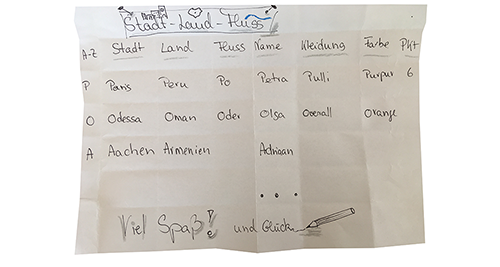 Stadt-Land-Fluss
A-Z Stadt Land Fluss Name Kleidung Farbe Pkt
P Paris Peru Po Petra Pulli Purpur 6
O Odessa Oman Oder Olga Overall Orange
A Aachen Armenien Adriaan
...
Viel Spaß! und Glück